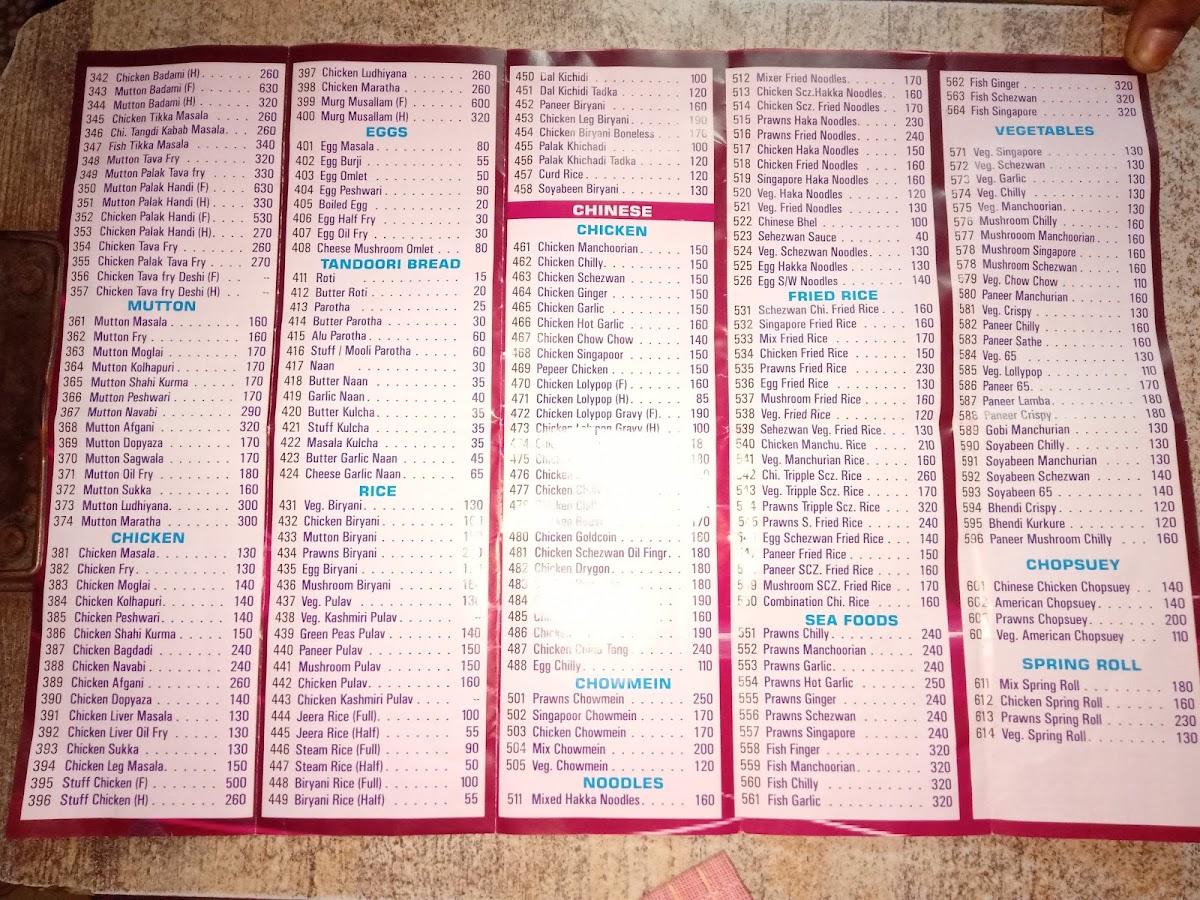 342 Chicken Badami (H) 260
343 Mutton Badami (F) 630
344 Mutton Badami (H) 320
345 Chicken Tikka Masala 260
346 Chi. Tangdi Kabab Masala. 260
347 Fish Tikka Masala 340
348 Mutton Tava Fry 320
349 Mutton Palak Tava fry 330
350 Mutton Palak Handi (F) 630
351 Mutton Palak Handi (H) 330
352 Chicken Palak Handi (F) 530
353 Chicken Palak Handi (H). 270
354 Chicken Tava Fry 260
355 Chicken Palak Tava Fry 270
356 Chicken Tava fry Deshi (F) --
357 Chicken Tava fry Deshi (H) --
MUTTON
361 Mutton Masala 160
362 Mutton Fry 160
363 Mutton Moglai 170
364 Mutton Kolhapuri 170
365 Mutton Shahi Kurma 170
366 Mutton Peshwari 170
367 Mutton Navabi 290
368 Mutton Afgani 320
369 Mutton Dopyaza 170
370 Mutton Sagwala 170
371 Mutton Oil Fry 180
372 Mutton Sukka 160
373 Mutton Ludhiyana 300
374 Mutton Maratha 300
CHICKEN
381 Chicken Masala 130
382 Chicken Fry 130
383 Chicken Moglai 140
384 Chicken Kolhapuri 140
385 Chicken Peshwari 140
386 Chicken Shahi Kurma 150
387 Chicken Bagdadi 240
388 Chicken Navabi 240
389 Chicken Afgani 260
390 Chicken Dopyaza 140
391 Chicken Liver Masala 130
392 Chicken Liver Oil Fry 130
393 Chicken Sukka 130
394 Chicken Leg Masala 150
395 Stuff Chicken (F) 500
396 Stuff Chicken (H) 260
397 Chicken Ludhiyana 260
398 Chicken Maratha 260
399 Murg Musallam (F) 600
400 Murg Musallam (H) 320
EGGS
401 Egg Masala 80
402 Egg Burji 55
403 Egg Omlet 50
404 Egg Peshwari 90
405 Boiled Egg 20
406 Egg Half Fry 30
407 Egg Oil Fry 30
408 Cheese Mushroom Omlet 80
TANDOORI BREAD
411 Roti 15
412 Butter Roti 20
413 Parotha 25
414 Butter Parotha 30
415 Alu Parotha 60
416 Stuff / Mooli Parotha 60
417 Naan 30
418 Butter Naan 35
419 Garlic Naan 40
420 Butter Kulcha 35
421 Stuff Kulcha 35
422 Masala Kulcha 35
423 Butter Garlic Naan 45
424 Cheese Garlic Naan 65
RICE
431 Veg. Biryani 130
432 Chicken Biryani
433 Mutton Biryani
434 Prawns Biryani
435 Egg Biryani
436 Mushroom Biryani
437 Veg. Pulav
438 Veg. Kashmiri Pulav --
439 Green Peas Pulav 140
440 Paneer Pulav 150
441 Mushroom Pulav 150
442 Chicken Pulav 160
443 Chicken Kashmiri Pulav --
444 Jeera Rice (Full) 100
445 Jeera Rice (Half) 55
446 Steam Rice (Full) 90
447 Steam Rice (Half) 50
448 Biryani Rice (Full) 100
449 Biryani Rice (Half) 55
450 Dal Kichidi 100
451 Dal Kichidi Tadka 120
452 Paneer Biryani 160
453 Chicken Leg Biryani 190
454 Chicken Biryani Boneless 170
455 Palak Khichadi 100
456 Palak Khichadi Tadka 120
457 Curd Rice 120
458 Soyabeen Biryani 130
CHINESE
CHICKEN
461 Chicken Manchoorian 150
462 Chicken Chilly 150
463 Chicken Schezwan 150
464 Chicken Ginger 150
465 Chicken Garlic 150
466 Chicken Hot Garlic 160
467 Chicken Chow Chow 140
468 Chicken Singapoor 150
469 Pepeer Chicken 150
470 Chicken Lolypop (F) 160
471 Chicken Lolypop (H) 85
472 Chicken Lolypop Gravy (F) 190
473 Chicken Gravy (H) 100
475 180
476 Chicken
477 Chicken
480 Chicken Goldcoin 160
481 Chicken Schezwan Oil Fingr. 180
482 Chicken Drygon 180
483 180
484 190
485 160
486 190
487 Chicken Tang 240
488 Egg Chilly 110
CHOWMEIN
501 Prawns Chowmein 250
502 Singapoor Chowmein 170
503 Chicken Chowmein 170
504 Mix Chowmein 200
505 Veg. Chowmein 120
NOODLES
511 Mixed Hakka Noodles 160
512 Mixer Fried Noodles 170
513 Chicken Scz.Hakka Noodles 160
514 Chicken Scz. Fried Noodles 170
515 Prawns Haka Noodles 230
516 Prawns Fried Noodles 240
517 Chicken Haka Noodles 150
518 Chicken Fried Noodles 160
519 Singapore Haka Noodles 160
520 Veg. Haka Noodles 120
521 Veg. Fried Noodles 130
522 Chinese Bhel 100
523 Sehezwan Sauce 40
524 Veg. Schezwan Noodles 130
525 Egg Hakka Noodles 130
526 Egg S/W Noodles 140
FRIED RICE
531 Schezwan Chi. Fried Rice 160
532 Singapore Fried Rice 160
533 Mix Fried Rice 170
534 Chicken Fried Rice 150
535 Prawns Fried Rice 230
536 Egg Fried Rice 130
537 Mushroom Fried Rice 160
538 Veg. Fried Rice 120
539 Sehezwan Veg. Fried Rice 130
540 Chicken Manchu. Rice 210
Veg. Manchurian Rice 160
Chi. Tripple Scz. Rice 260
Veg. Tripple Scz. Rice 170
Prawns Tripple Scz. Rice 320
Prawns S. Fried Rice 240
Egg Schezwan Fried Rice 140
Paneer Fried Rice 150
Paneer SCZ. Fried Rice 160
Mushroom SCZ. Fried Rice 170
Combination Chi. Rice 160
SEA FOODS
551 Prawns Chilly 240
552 Prawns Manchoorian 240
553 Prawns Garlic 240
554 Prawns Hot Garlic 250
555 Prawns Ginger 240
556 Prawns Schezwan 240
557 Prawns Singapore 240
558 Fish Finger 320
559 Fish Manchoorian 320
560 Fish Chilly 320
561 Fish Garlic 320
562 Fish Ginger 320
563 Fish Schezwan 320
564 Fish Singapore 320
VEGETABLES
571 Veg. Singapore 130
572 Veg. Schezwan 130
573 Veg. Garlic 130
574 Veg. Chilly 130
575 Veg. Manchoorian 130
576 Mushroom Chilly 160
577 Mushrooom Manchoorian 160
578 Mushroom Singapore 160
578 Mushroom Schezwan 160
579 Veg. Chow Chow 110
580 Paneer Manchurian 160
581 Veg. Crispy 130
582 Paneer Chilly 160
583 Paneer Sathe 160
584 Veg. 65 130
585 Veg. Lollypop 110
586 Paneer 65 170
587 Paneer Lamba 180
588 Paneer Crispy 180
589 Gobi Manchurian 130
590 Soyabeen Chilly 130
591 Soyabeen Manchurian 130
592 Soyabeen Schezwan 140
593 Soyabeen 65 140
594 Bhendi Crispy 120
595 Bhendi Kurkure 120
596 Paneer Mushroom Chilly 160
CHOPSUEY
601 Chinese Chicken Chopsuey 140
602 American Chopsuey 140
Prawns Chopsuey 200
Veg. American Chopsuey 110
SPRING ROLL
611 Mix Spring Roll 180
612 Chicken Spring Roll 160
613 Prawns Spring Roll 230
614 Veg. Spring Roll 130